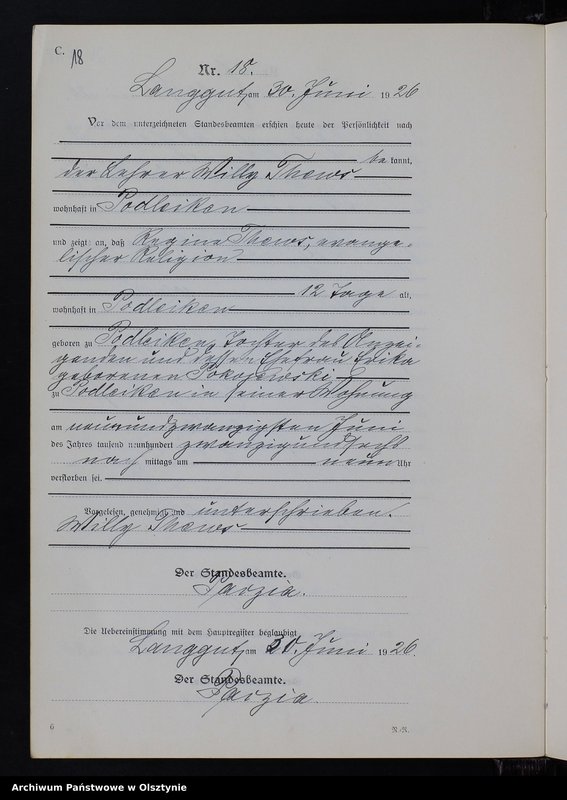 C. 18
Nr. 18.
Langgut, am 30. Juni 1926
Vor dem unterzeichneten Standesbeamten erschien heute der Persönlichkeit nach
be kannt,
der Lehrer Willy Thews
wohnhaft in Podleiken
und zeigt an, daß Regine Thews, evange-
lischer Religion
12 Tage alt,
wohnhaft in Podleiken
geboren zu Podleiken, Tochter des Anzei-
genden und dessen Ehefrau Erika
geborenen Pokojewski,
zu Podleiken in seiner Wohnung
am neunundzwanzigsten Juni
des Jahres tausend neunhundert zwanzigundsechs
nach mittags um neun Uhr
verstorben sei.
Vorgelesen, genehmigt und unterschrieben.
Willy Thews
Der Standesbeamte.
Parzia.
Die Uebereinstimmung mit dem Hauptregister beglaubigt
Langgut, am 30. Juni 1926.
Der Standesbeamte.
Parzia.
6 N.-N.
Archiwum Państwowe w Olsztynie